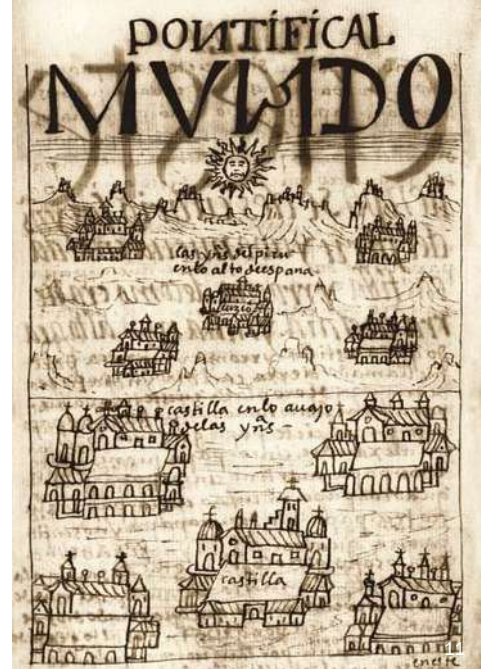 PONTIFICAL
MVNDO
las yñs del piru
en lo alto de españa
cuzco
castilla en lo auajo
de las yñs
castilla
en este
11